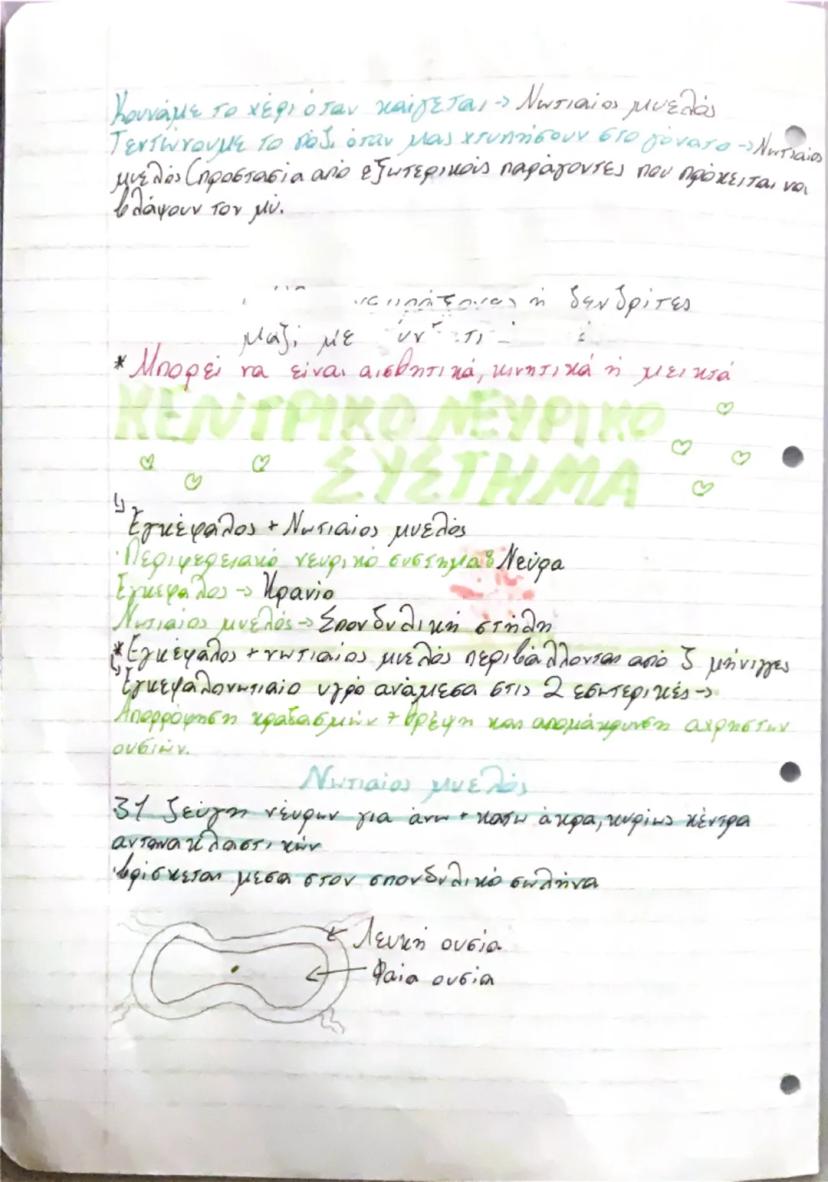 Κουνάμε το χέρι όταν καίγεται → Νωτιαίος μυελός
Τεντώνουμε το πόδι όταν μας χτυπήσουν στο γόνατο → Νωτιαίος
μυελός (προστασία από εξωτερικούς παράγοντες που πρόκειται να
βλάψουν τον μυ.
ή δενδρίτες
μαζί με
* Μπορεί να είναι αισθητικά, κινητικά ή μεικτά
ΚΕΝΤΡΙΚΟ ΝΕΥΡΙΚΟ
ΣΥΣΤΗΜΑ
Εγκέφαλος + Νωτιαίος μυελός
Περιφερειακό νευρικό συστημα: Νεύρα
Εγκέφαλος → Κρανίο
Νωτιαίος μυελός → Σπονδυλική στήλη
* Εγκέφαλος + νωτιαίος μυελός περιβάλλονται από 3 μήνιγγες
Εγκεφαλονωτιαίο υγρό ανάμεσα στις 2 εσωτερικές →
Απορρόφηση κραδασμών + θρέψη και απομάκρυνση αχρηστων
ουσιών.
Νωτιαίος μυελός
31 ζεύγη νεύρων για άνω + κατω άκρα, κυρίως κέντρα
αντανακλαστικών
βρίσκεται μεσα στον σπονδυλικό σωλήνα
Λευκή ουσία
Φαία ουσία